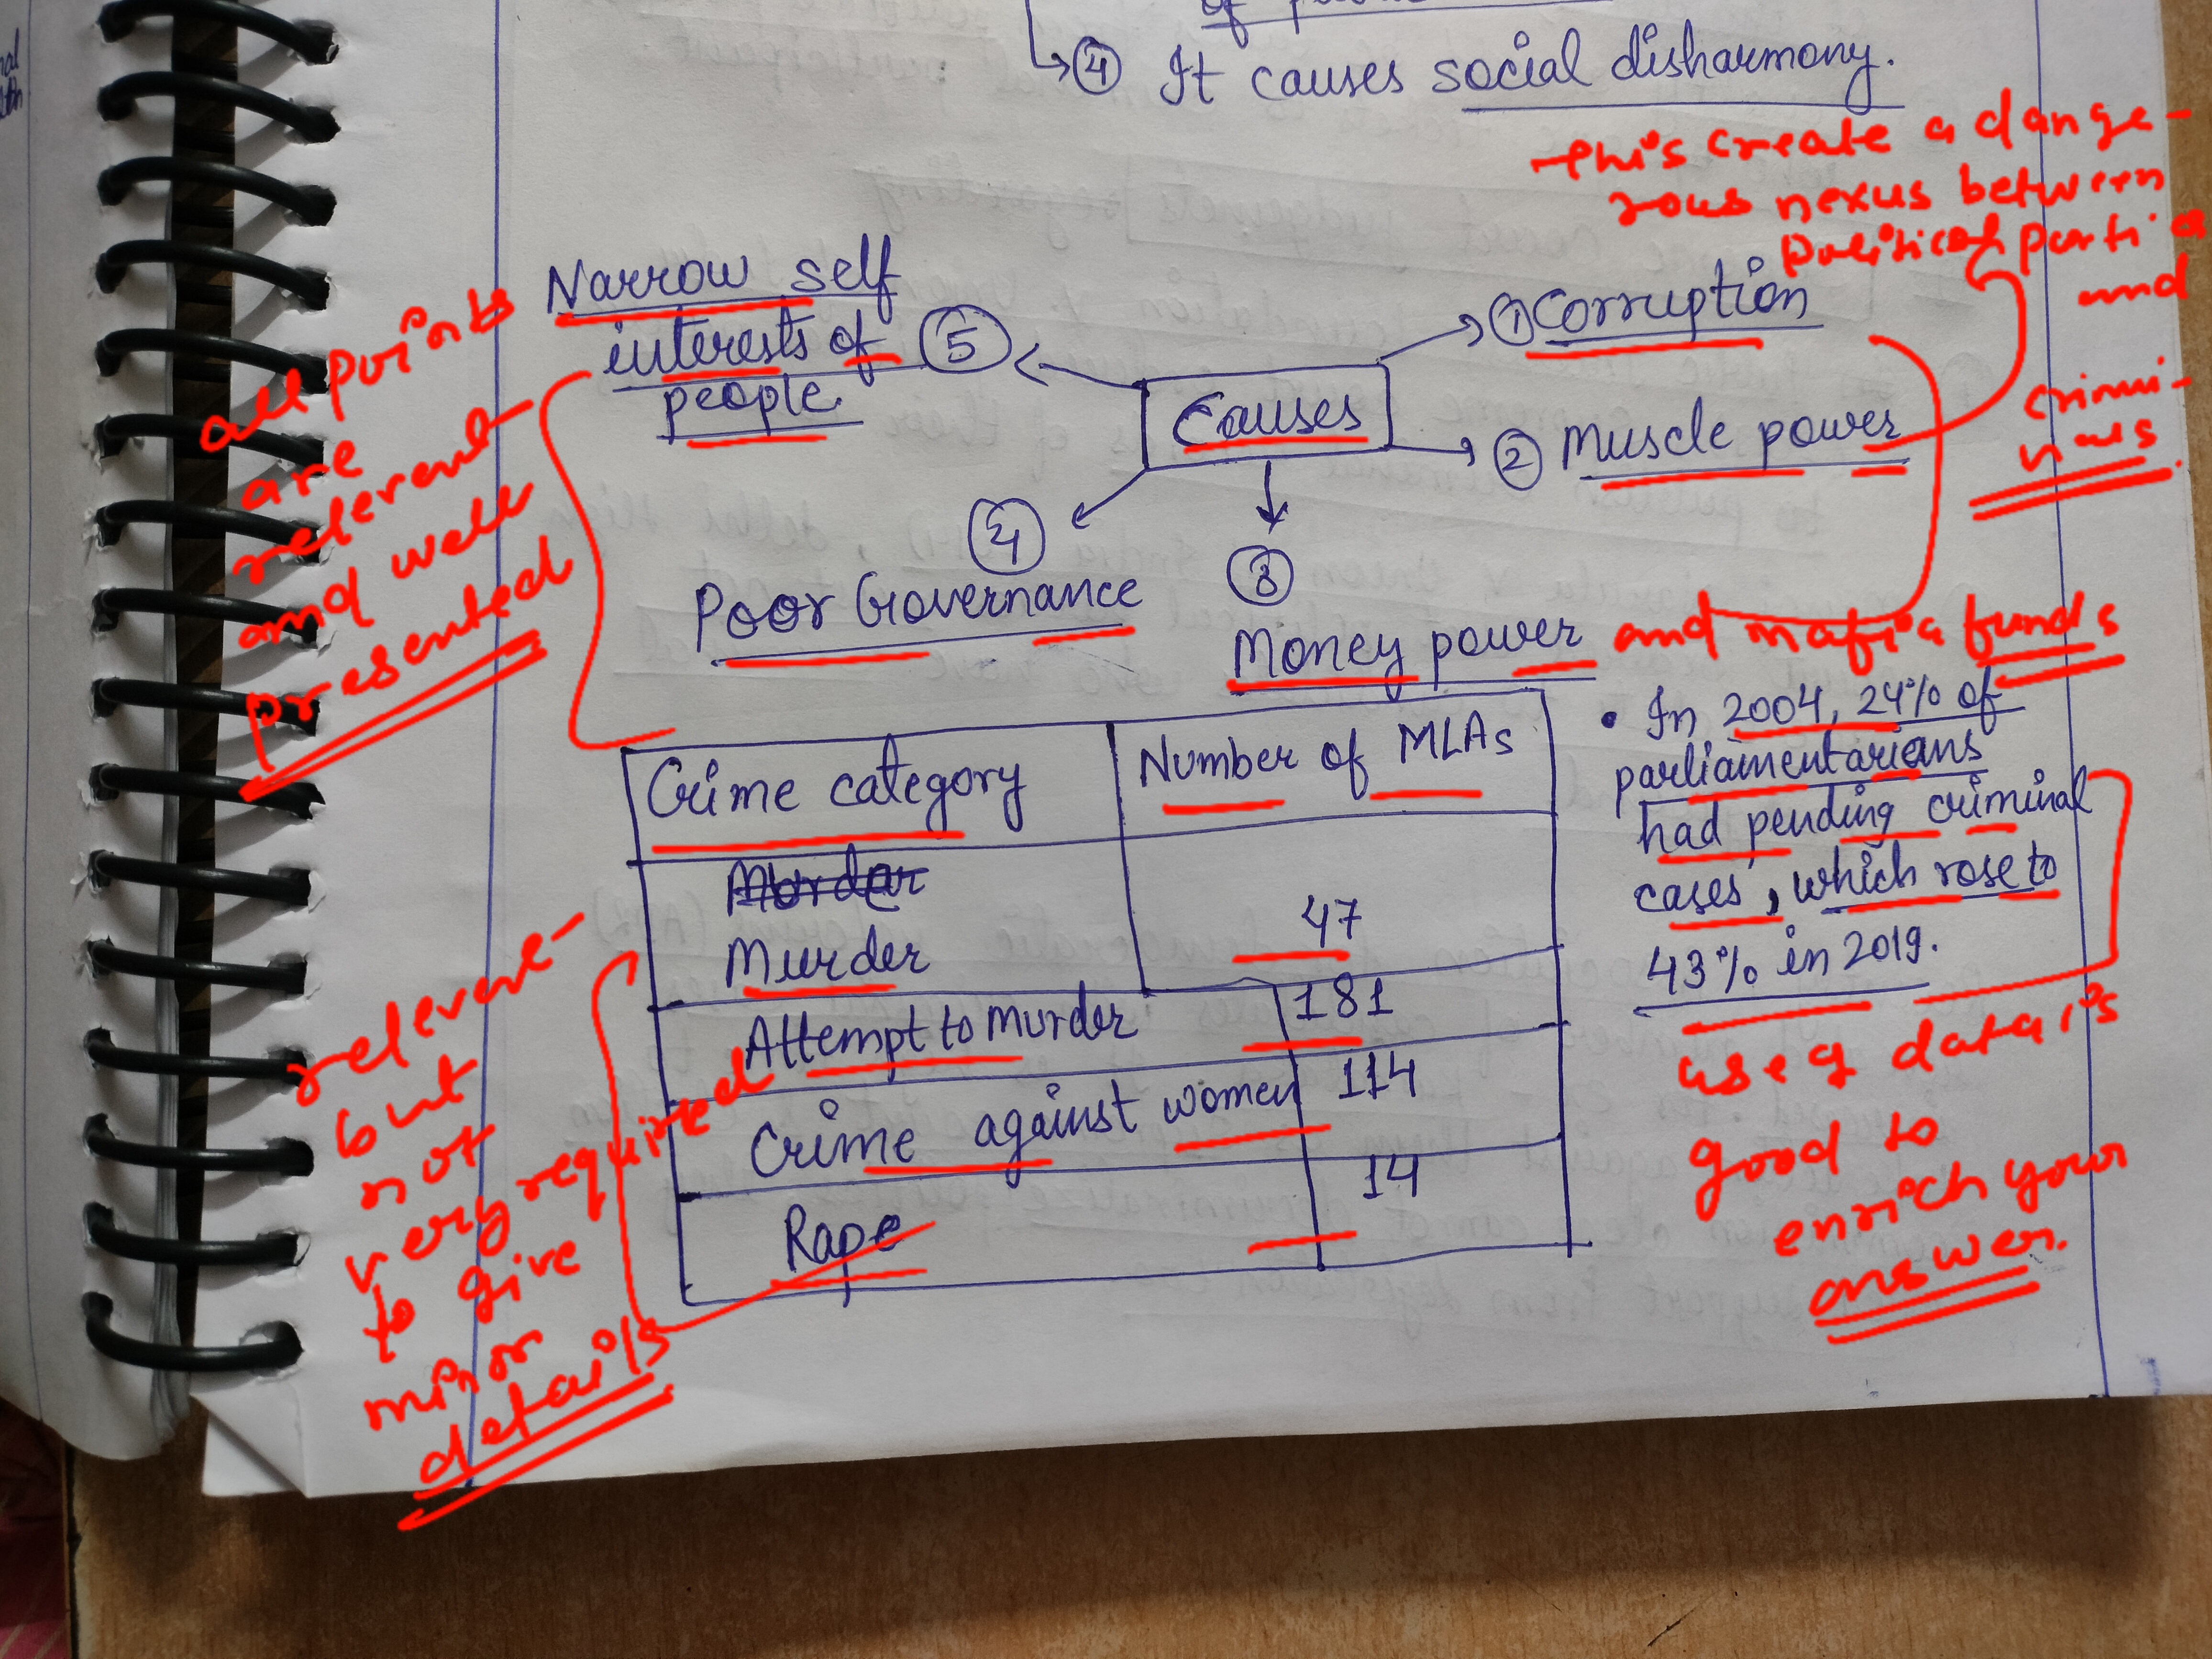 ④ It causes social disharmony.
this create a dange-
rous nexus between
political parties
and
crimi-
nals.
Narrow self
interests of ⑤
people.
all points
are
relevent
and well
presented
Causes
① Corruption
② Muscle power
④
Poor Governance
③
Money power and mafia funds
Crime category Number of MLAs
Murder 47
Attempt to murder 181
Crime against women 114
Rape 14
• In 2004, 24% of
parliamentarians
had pending criminal
cases, which rose to
43% in 2019.
use of data is
good to
enrich your
answer.
but
not
very required
to give
minor
details